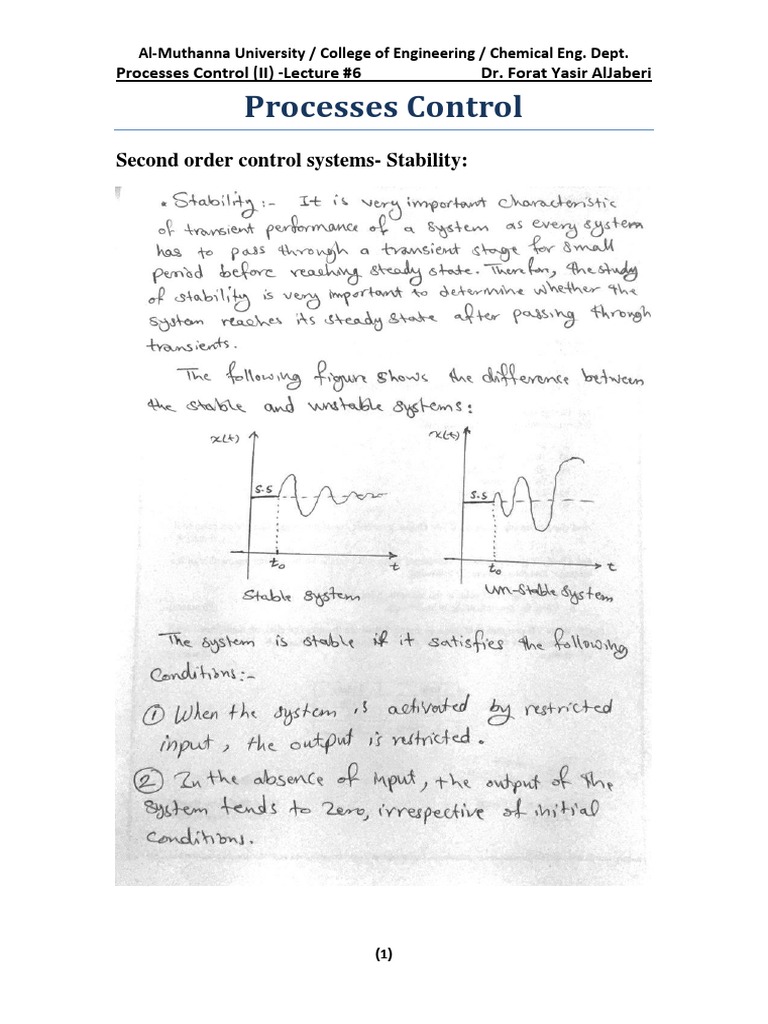 Al-Muthanna University / College of Engineering / Chemical Eng. Dept.
Processes Control (II) -Lecture #6 Dr. Forat Yasir AlJaberi
Processes Control
Second order control systems- Stability:
• Stability:- It is very important characteristic
of transient performance of a system as every system
has to pass through a transient stage for small
period before reaching steady state. Therefor, the study
of stability is very important to determine whether the
system reaches its steady state after passing through
transients.
The following figure shows the difference between
the stable and unstable systems:
x(t)
s.s
t₀
t
Stable system
x(t)
s.s
t₀
t
un-stable system
The system is stable if it satisfies the following
Conditions:-
① When the system is activated by restricted
input, the output is restricted.
② In the absence of input, the output of the
system tends to zero, irrespective of initial
conditions.
(1)